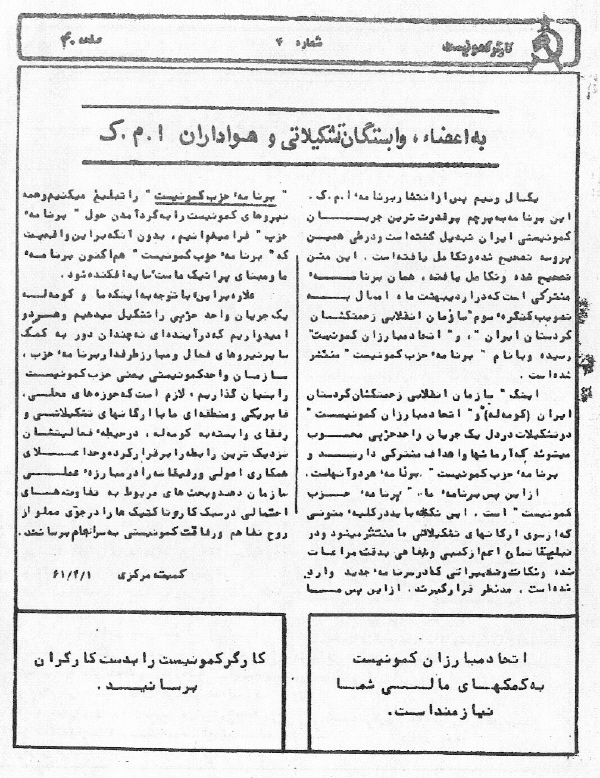 کارگر کمونیست
شماره ۴
صفحه ۴۰
به اعضاء، وابستگان تشکیلاتی و هواداران ا.م.ک
یکسال و نیم پس از انتشار برنامه ا.م.ک.
این برنامه به پرچم پرقدرت ترین جریان
کمونیستی ایران تبدیل گشته است و در طی همین
پروسه تصحیح شده و تکامل یافته است. این متن
تصحیح شده و تکامل یافته، همان برنامه
مشترکی است که در اردیبهشت ماه امسال به
تصویب کنگره سوم "سازمان انقلابی زحمتکشان
کردستان ایران"، و "اتحاد مبارزان کمونیست"
رسیده و بنام "برنامه حزب کمونیست" منتشر
شده است.
اینک "سازمان انقلابی زحمتکشان کردستان
ایران (کومه‌له) و "اتحاد مبارزان کمونیست"
دو تشکیلات در دل یک جریان واحد حزبی محسوب
میشوند که آرمانها و اهداف مشترکی دارند و
برنامه حزب کمونیست" برنامه هر دو آنهاست.
از این پس برنامه ما، "برنامه حزب
کمونیست" است. این نکته باید در کلیه متونی
که از سوی ارگانهای تشکیلاتی ما منتشر میشود و در
تبلیغاتمان اعم از کتبی و شفاهی بدقت مراعات
شده و نکات و تغییراتی که در برنامه جدید وارد
شده است، مدنظر قرار گیرند. از این پس ما
"برنامه حزب کمونیست" را تبلیغ میکنیم و همه
نیروهای کمونیست را به گرد آمدن حول "برنامه
حزب" فرا میخوانیم، بدون آنکه بر این واقعیت
که "برنامه حزب کمونیست" هم اکنون برنامه
ما و مبنای پراتیک ماست سایه افکنده شود.
علاوه بر این با توجه به اینکه ما و کومه‌له
یک جریان واحد حزبی را تشکیل میدهیم و هر دو
امیدواریم که در آینده‌ای نه چندان دور به کمک
سایر نیروهای فعال و مبارز طرفدار برنامه حزب،
سازمان واحد کمونیستی یعنی حزب کمونیست
را بنیان گذاریم، لازم است که حوزه‌های محلی،
فابریکی و منطقه‌ای ما با ارگانهای تشکیلاتی و
رفقای وابسته به کومه‌له، در حیطه فعالیتشان
نزدیک ترین رابطه را برقرار کرده و حد اعلای
همکاری اصولی و رفیقانه را در مبارزه عملی
سازمان دهند و بحث‌های مربوط به تفاوت‌های
احتمالی در سبک کار و تاکتیک ها را در جوی مملو از
روح تفاهم و رفاقت کمونیستی به سرانجام برسانند.
کمیته مرکزی ۶۱/۴/۱
اتحاد مبارزان کمونیست
به کمکهای مالی شما
نیازمند است.
کارگر کمونیست را بدست کارگران
برسانید.